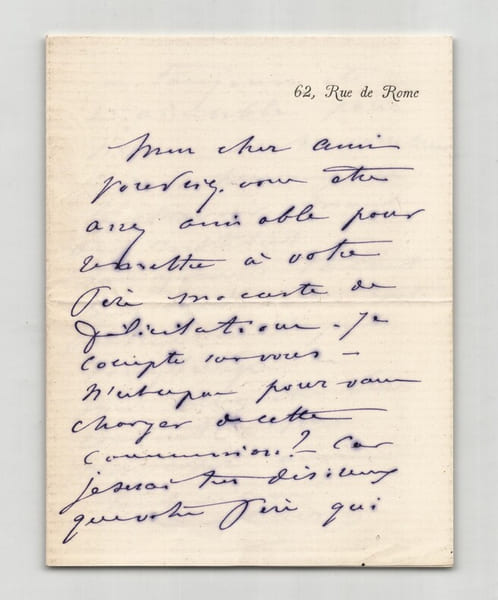 62, Rue de Rome
Mon cher ami
voudriez-vous être
assez aimable pour
remettre à votre
Père ma carte de
félicitations. Je
compte sur vous –
N'est-ce pas pour vous
charger de cette
commission? – Car
je serais très désireux
que votre Père qui